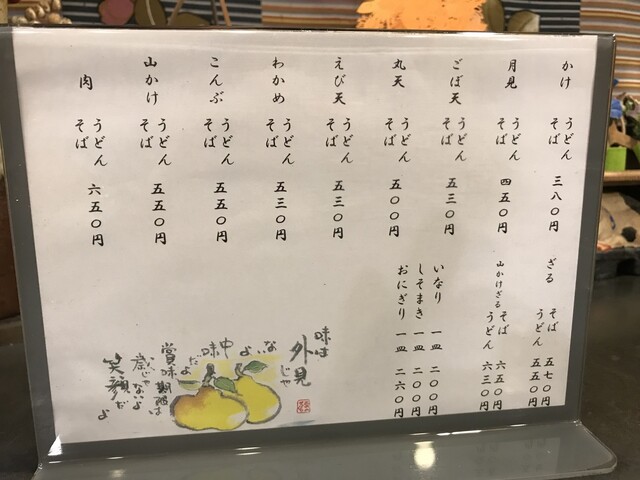 かけ うどん そば 三八〇円
月見 うどん そば 四五〇円
ごぼ天 うどん そば 五三〇円
丸天 うどん そば 五〇〇円
えび天 うどん そば 五三〇円
わかめ うどん そば 五三〇円
こんぶ うどん そば 五五〇円
山かけ うどん そば 五五〇円
肉 うどん そば 六五〇円
ざる そば 五七〇円
うどん 五五〇円
山かけざる そば 六五〇円
うどん 六三〇円
いなり 一皿 二〇〇円
しそまき 一皿 二〇〇円
おにぎり 一皿 二六〇円
味は
外見
じゃ
ないよ
中味
だよ
賞味期限は
歳じゃないよ
笑顔だよ